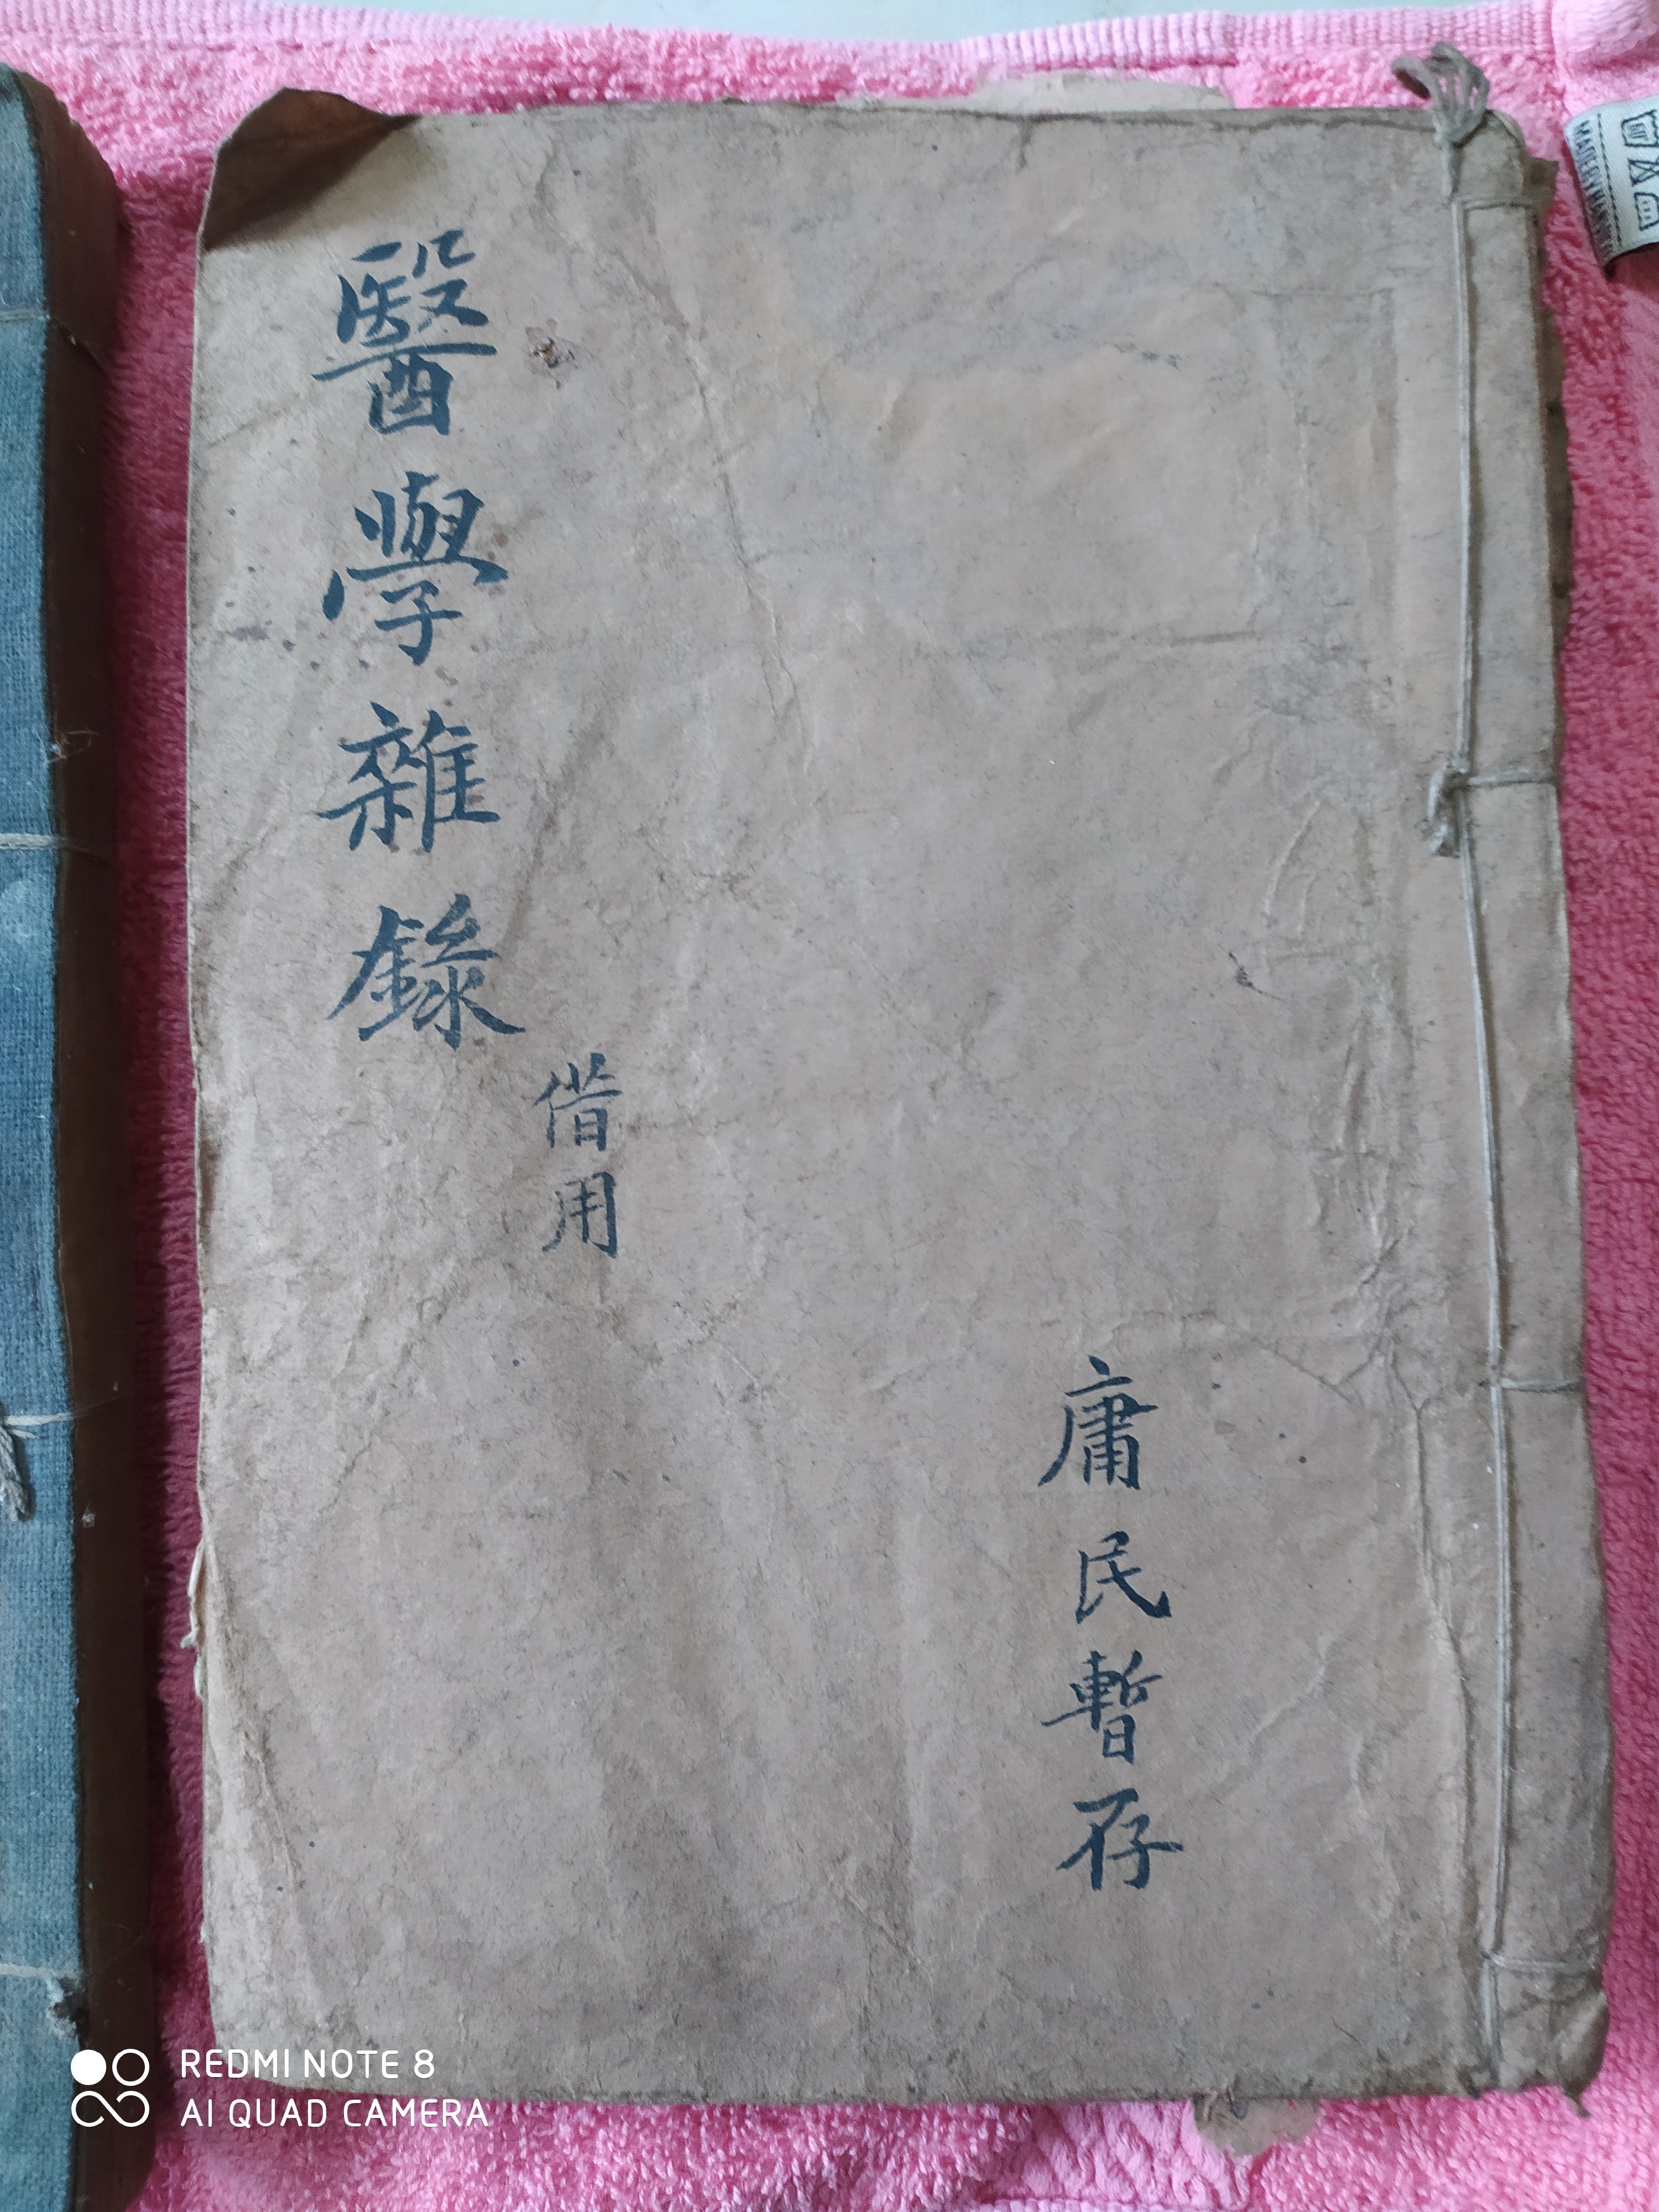 醫學雜錄
偕用
庸民暫存
MADE IN
REDMI NOTE 8
AI QUAD CAMERA